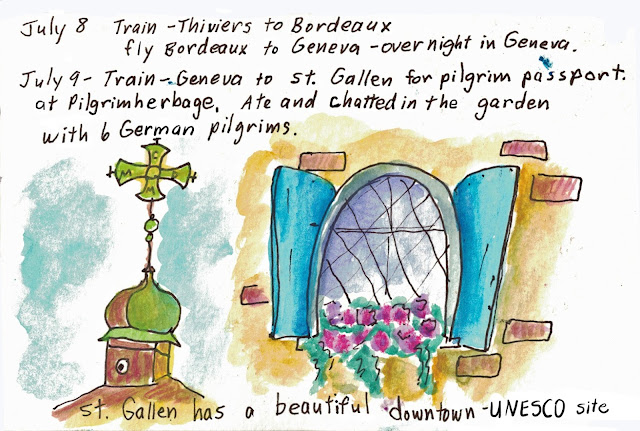 July 8 Train - Thiviers to Bordeaux
fly Bordeaux to Geneva - over night in Geneva.
July 9 - Train - Geneva to St. Gallen for pilgrim passport.
at Pilgrimherbage. Ate and chatted in the garden
with 6 German pilgrims.
St. Gallen has a beautiful downtown - UNESCO site